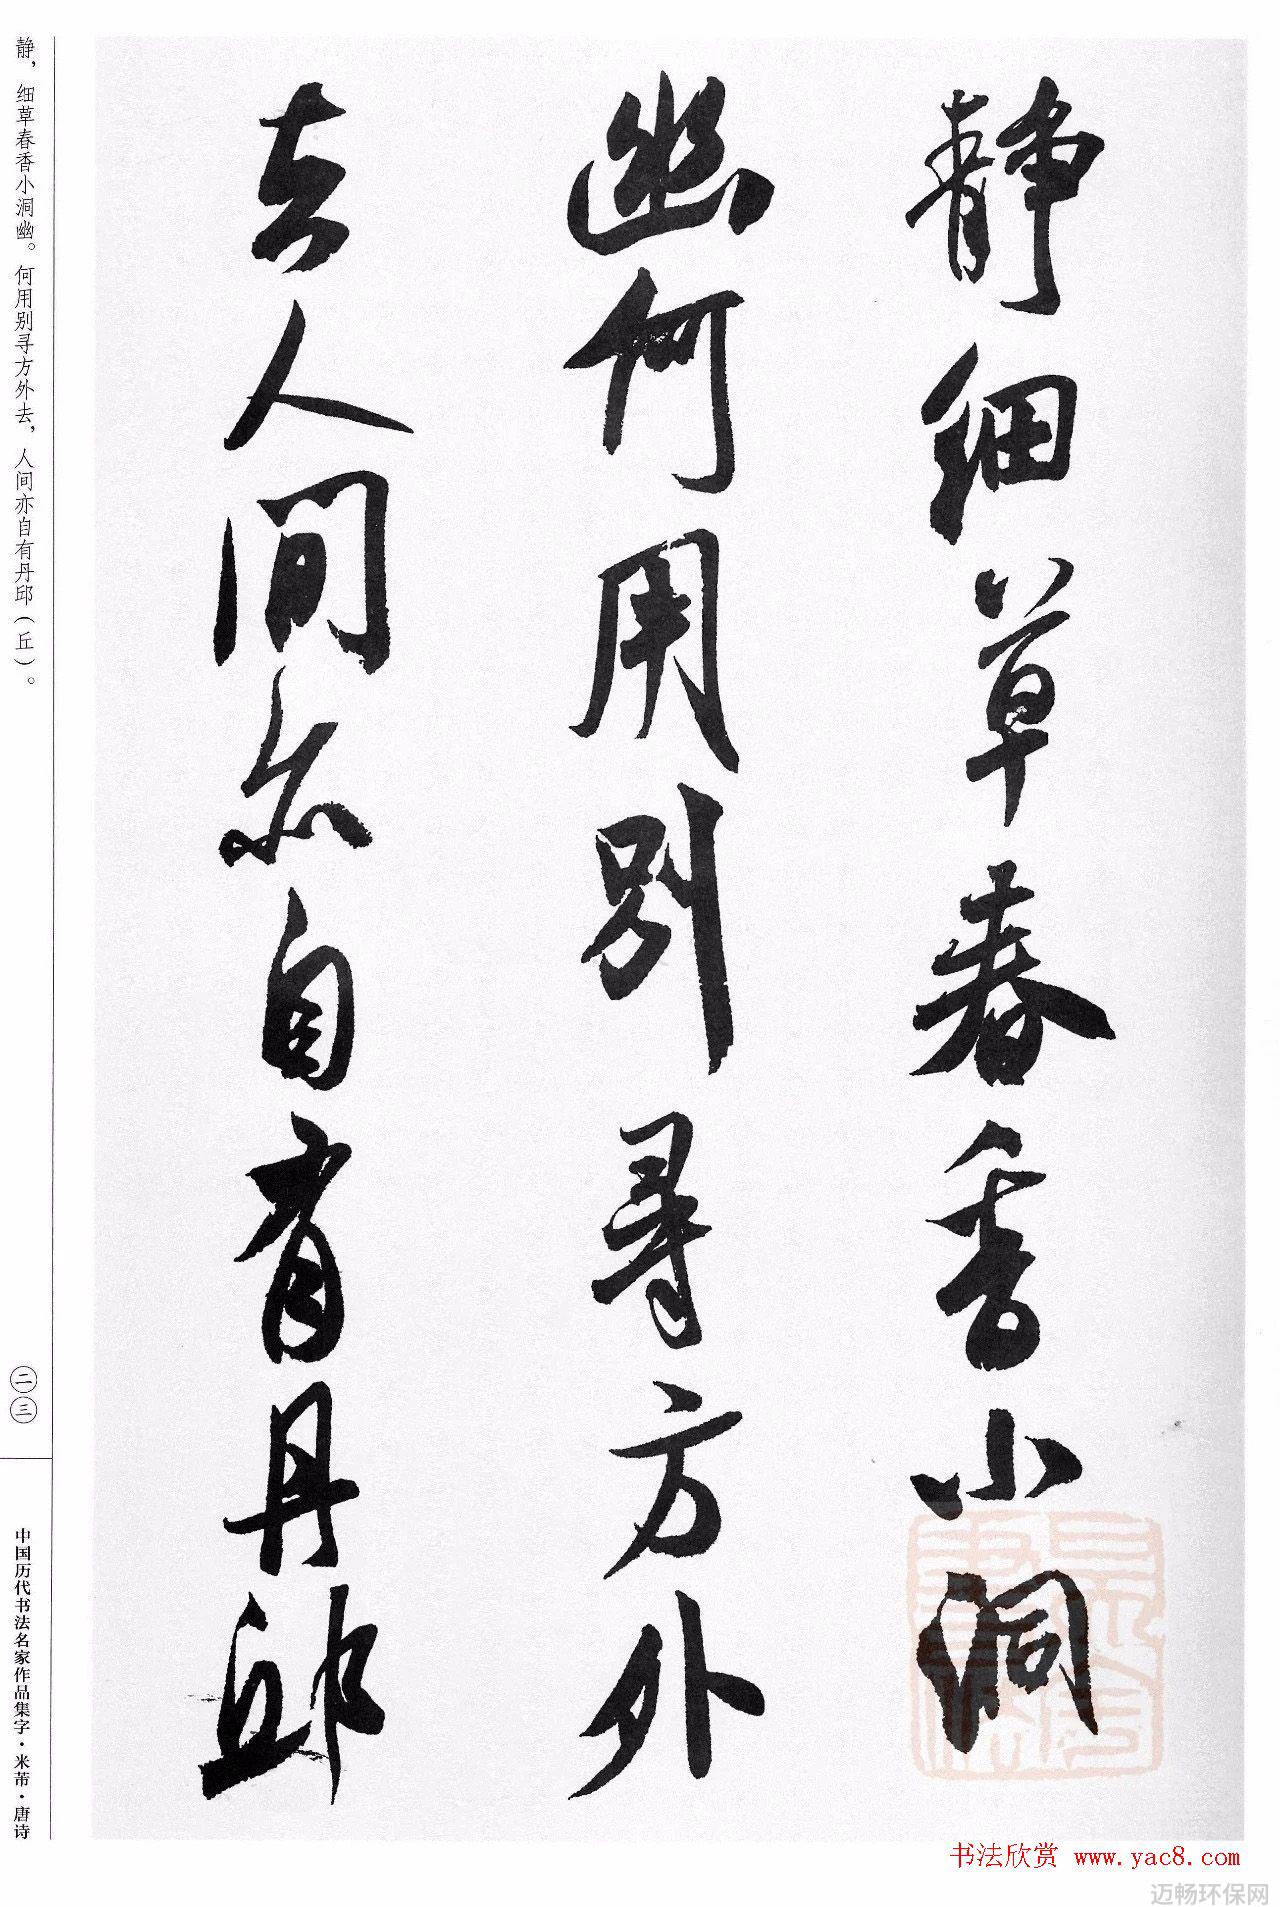 静细草春香小洞
幽何用别寻方外
去人间亦自有丹邱
静，细草春香小洞幽。何用别寻方外去，人间亦自有丹邱（丘）。
二三
中国历代书法名家作品集字·米芾·唐诗
书法欣赏 www.yac8.com
迈畅环保网